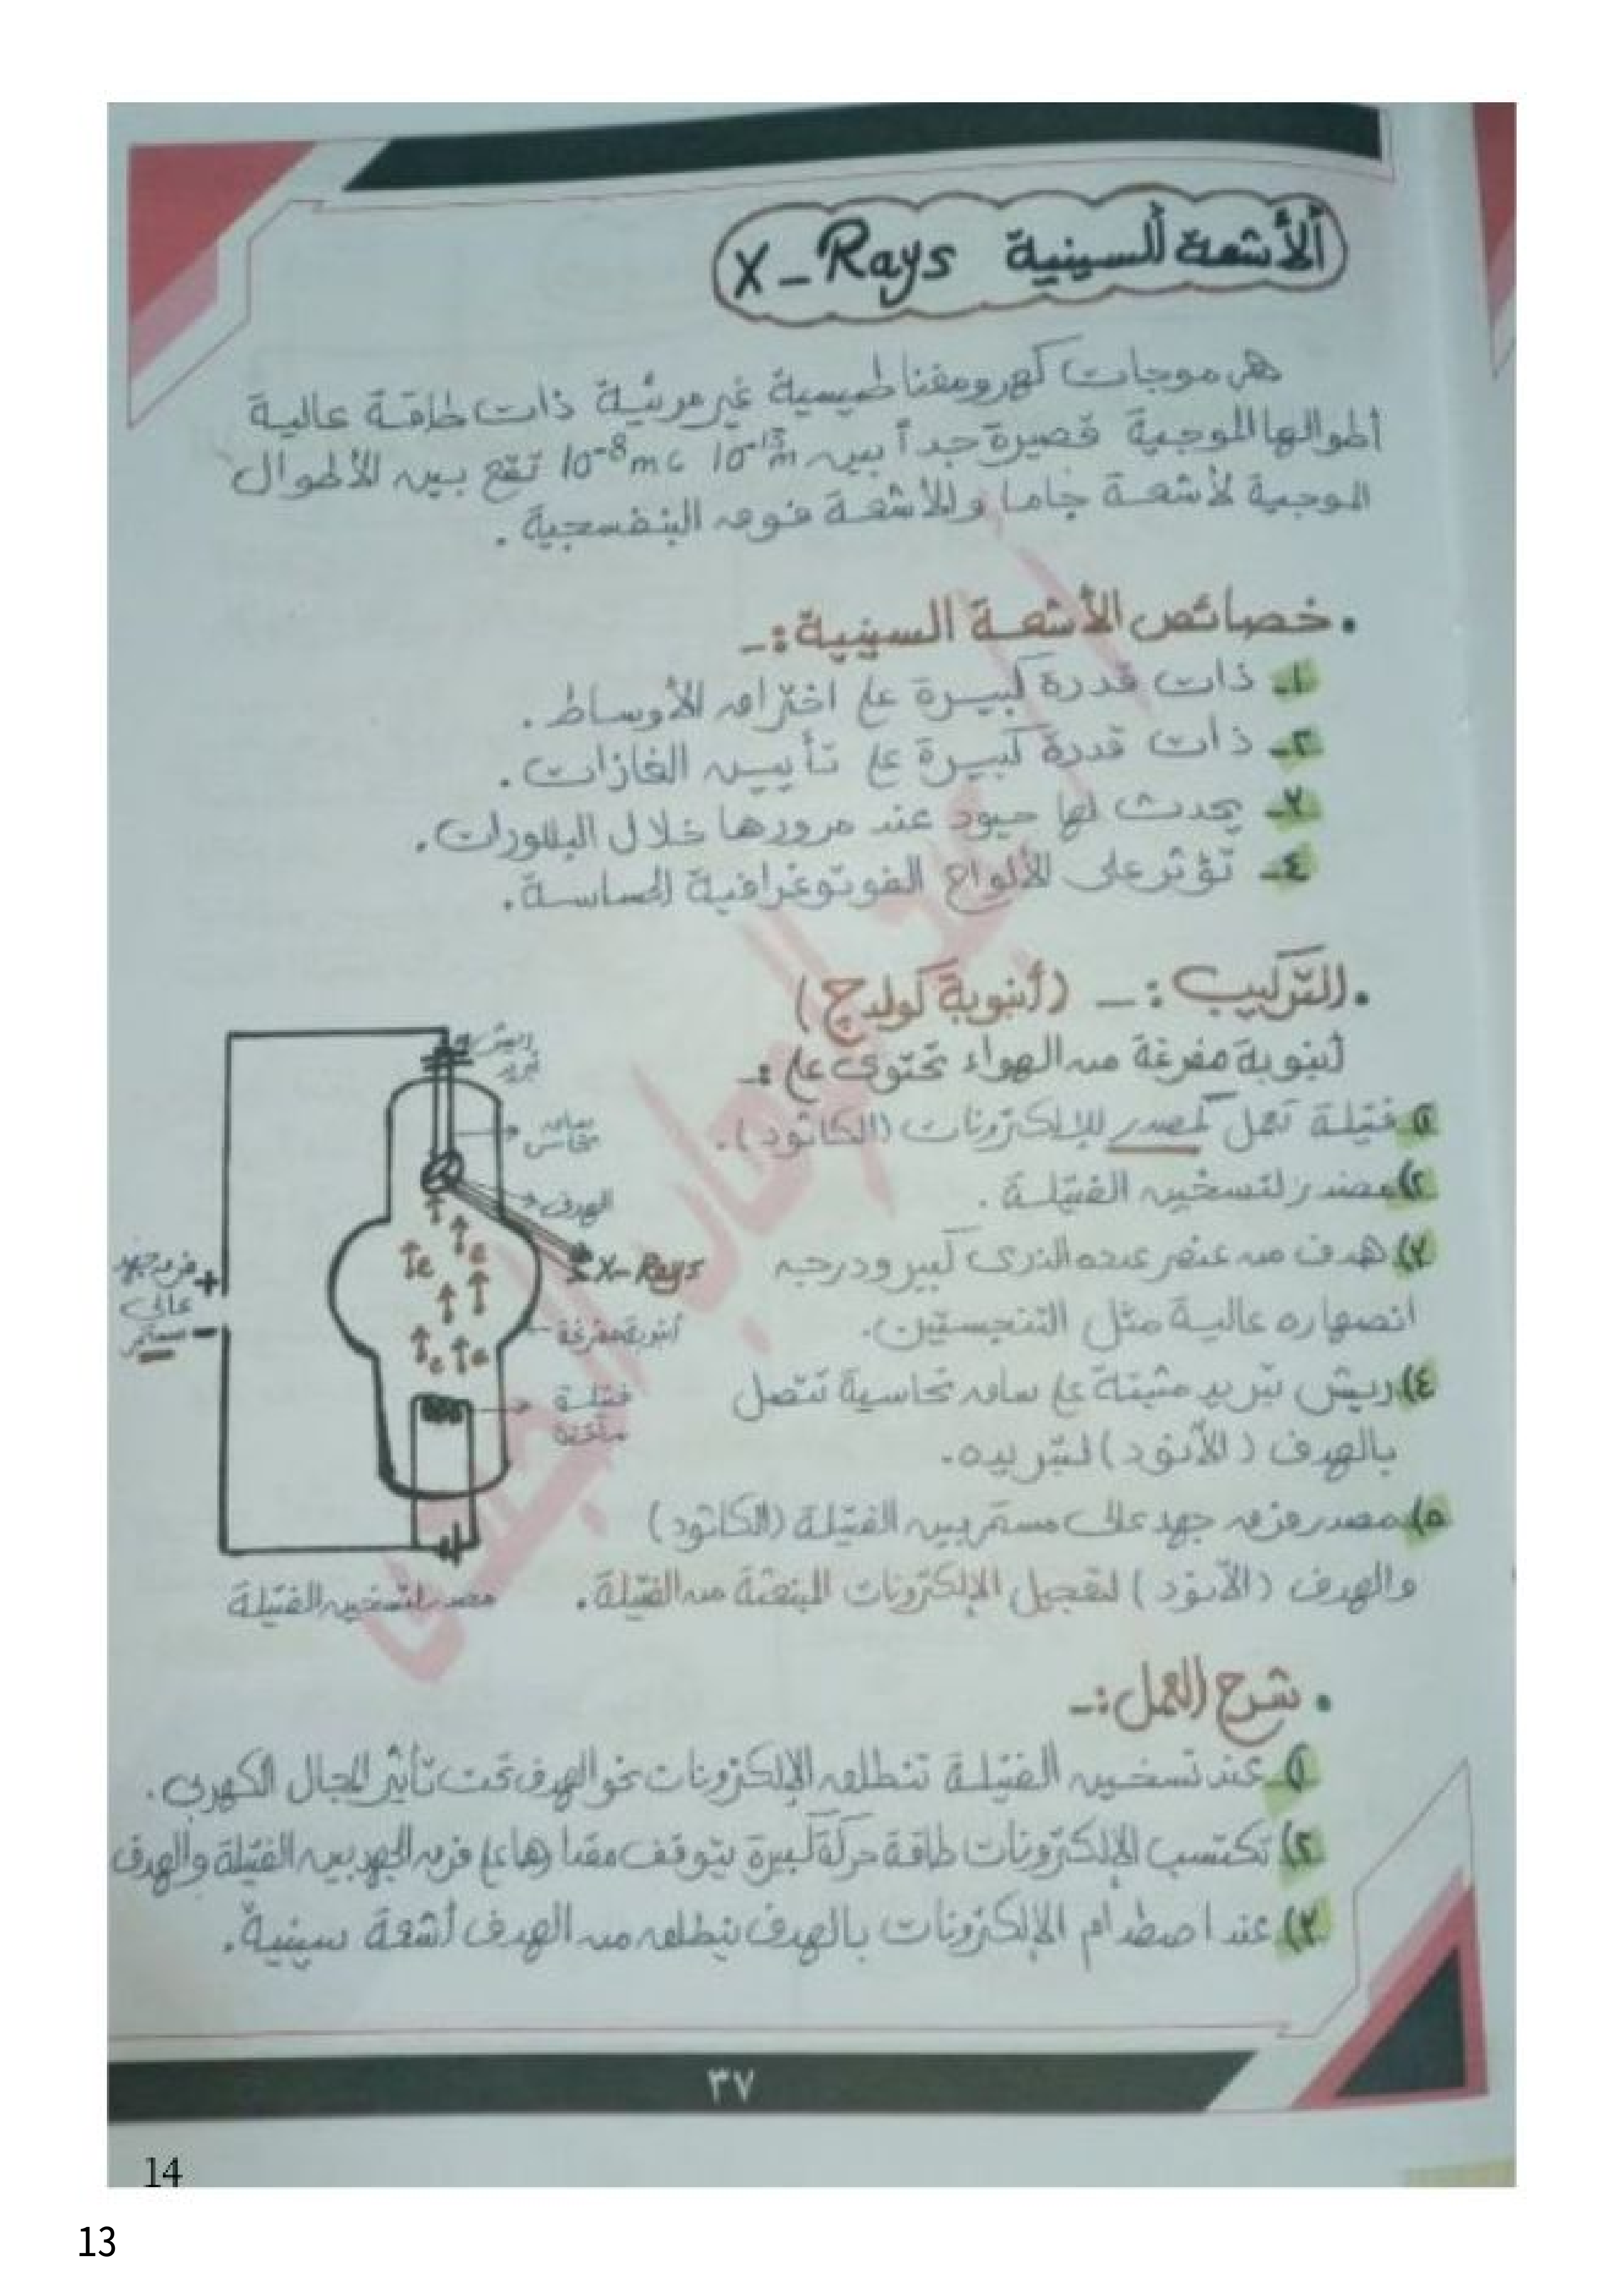 الأشعة السينية X-Rays
هى موجات كهرومغناطيسية غير مرئية ذات طاقة عالية
أطوالها الموجية قصيرة جداً بين 10⁻¹³m ، 10⁻⁸m تقع بين الأطوال
الموجية لأشعة جاما والأشعة فوق البنفسجية .
• خصائص الأشعة السينية :-
١- ذات قدرة كبيرة على اختراق الأوساط .
٢- ذات قدرة كبيرة على تأيين الغازات .
٣- يحدث لها حيود عند مرورها خلال البللورات .
٤- تؤثر على الألواح الفوتوغرافية الحساسة .
• التركيب :- (أنبوبة كولدج)
أنبوبة مفرغة من الهواء تحتوى على :-
١) فتيلة تعمل كمصدر للإلكترونات (الكاثود) .
٢) مصدر لتسخين الفتيلة .
٣) هدف من عنصر عدده الذرى كبير ودرجة
انصهاره عالية مثل التنجستين .
٤) ريش تبريد مثبتة على ساق نحاسية تتصل
بالهدف (الأنود) لتبريده .
٥) مصدر فرق جهد عالى مستمر بين الفتيلة (الكاثود)
والهدف (الأنود) لتعجيل الإلكترونات المنبعثة من الفتيلة .
ريش
تبريد
ساق
نحاس
الهدف
X-Rays
أنبوبة مفرغة
فتيلة
ساخنة
فرق جهد
عالى
مستمر
+
-
e
e
e
e
مصدر لتسخين الفتيلة
• شرح العمل :-
١) عند تسخين الفتيلة تنطلق الإلكترونات نحو الهدف تحت تأثير المجال الكهربى .
٢) تكتسب الإلكترونات طاقة حركة كبيرة يتوقف مقدارها على فرق الجهد بين الفتيلة والهدف
٣) عند اصطدام الإلكترونات بالهدف ينطلق من الهدف أشعة سينية .
٣٧
14
13